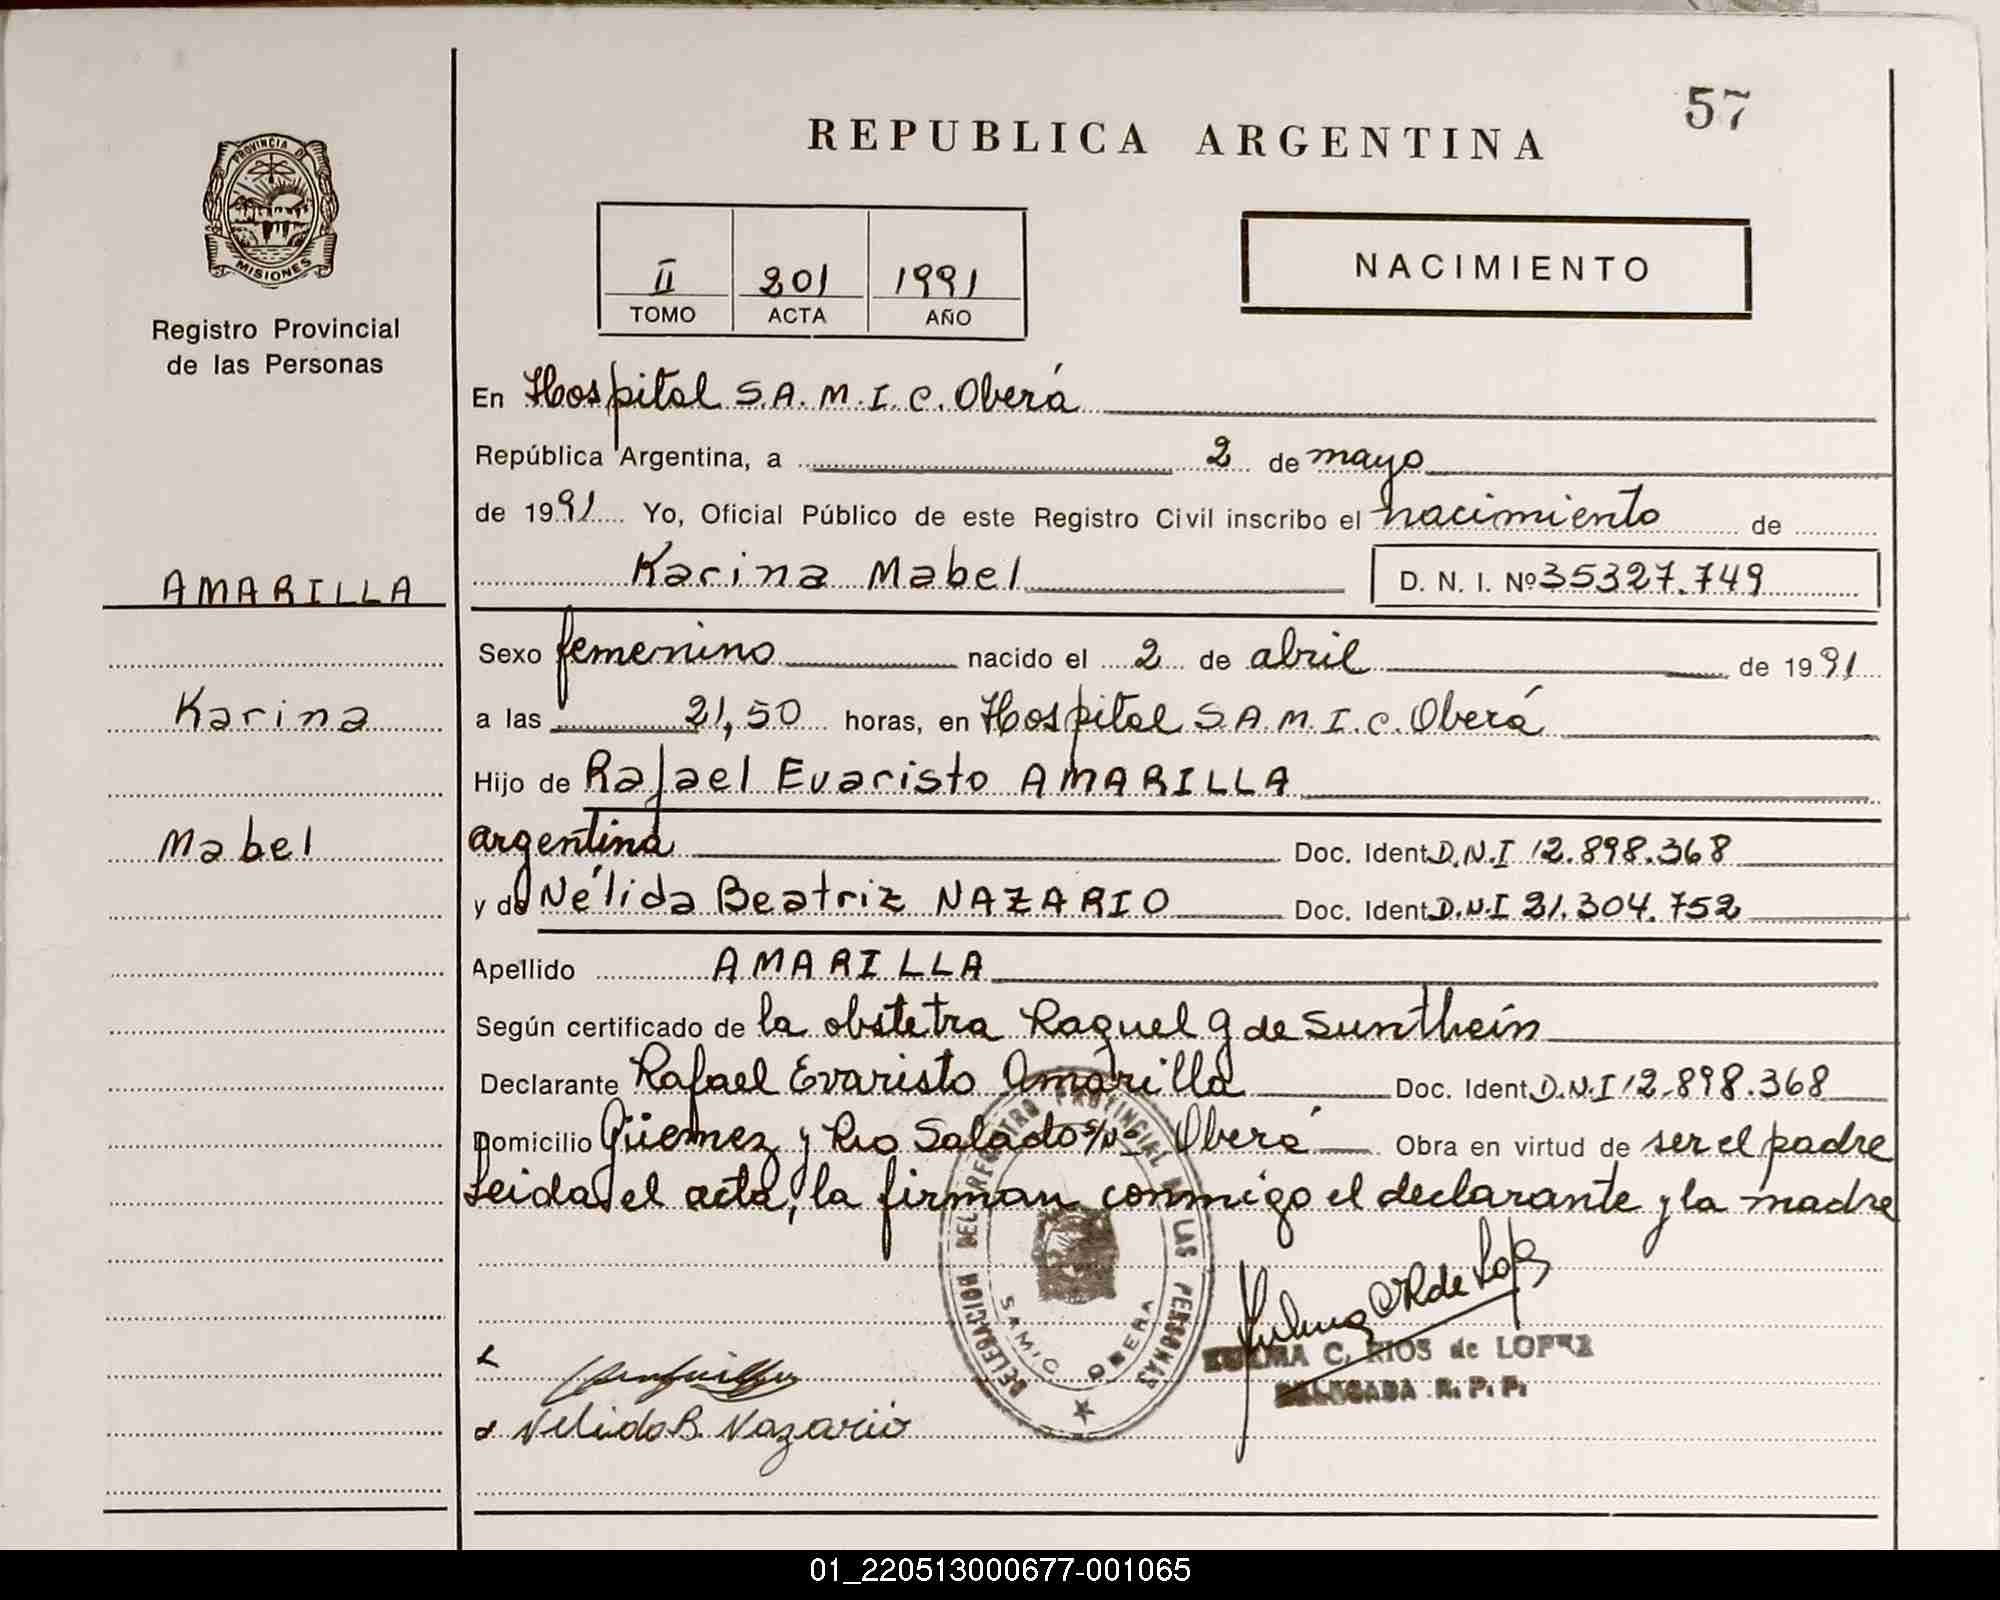 57
REPUBLICA ARGENTINA
PROVINCIA DE
MISIONES
Registro Provincial
de las Personas
II 201 1991
TOMO ACTA AÑO
NACIMIENTO
En Hospital S.A.M.I.C. Oberá
República Argentina, a 2 de mayo
de 1991 Yo, Oficial Público de este Registro Civil inscribo el nacimiento de
Karina Mabel D. N. I. Nº 35327.749
AMARILLA
Sexo femenino nacido el 2 de abril de 1991
Karina
a las 21,50 horas, en Hospital S.A.M.I.C. Oberá
Hijo de Rafael Evaristo AMARILLA
Mabel
argentina Doc. Ident. D.N.I 12.898.368
y de Nélida Beatriz NAZARIO Doc. Ident. D.N.I 21.304.752
Apellido AMARILLA
Según certificado de la obstetra Raquel g de Sunthein
Declarante Rafael Evaristo Amarilla Doc. Ident. D.N.I 12.898.368
Domicilio Güemez y Rio Salado s/Nº Oberá Obra en virtud de ser el padre
Leida el acta, la firman conmigo el declarante y la madre
DELEGACION DEL REGISTRO PROVINCIAL DE LAS PERSONAS
SAMIC OBERA
C. RIOS de LOPEZ
DELEGADA R. P. P.
Nelida B. Nazario
01_220513000677-001065